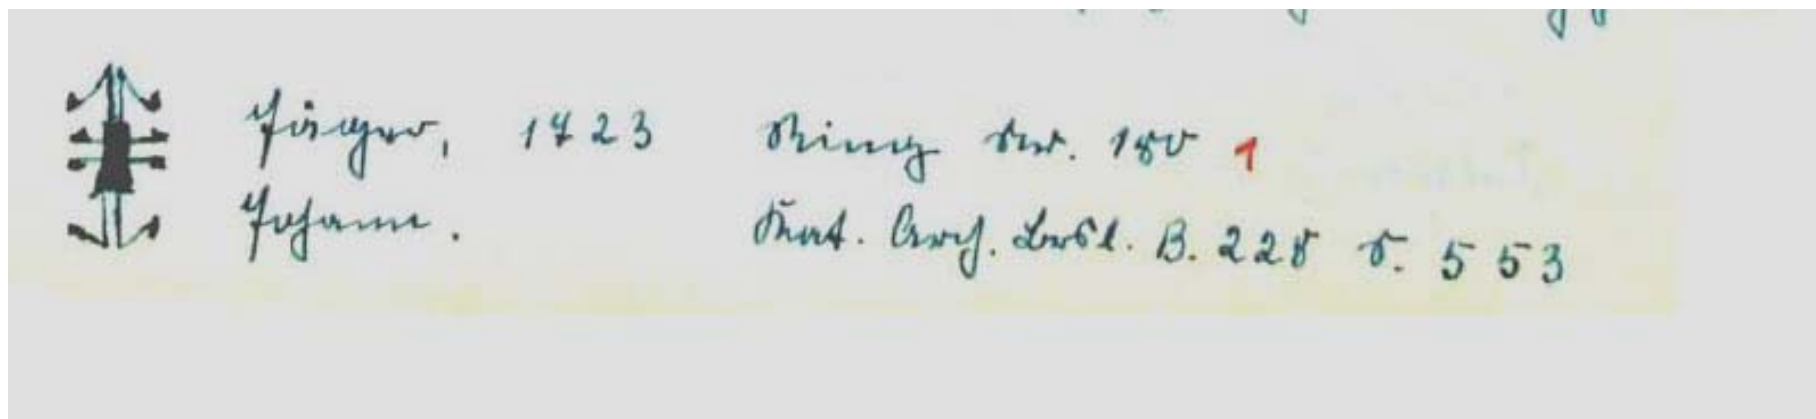 Jäger, 1723 Ring Nr. 180 1
Johann. Stat. Arch. Bresl. B. 228 S. 553